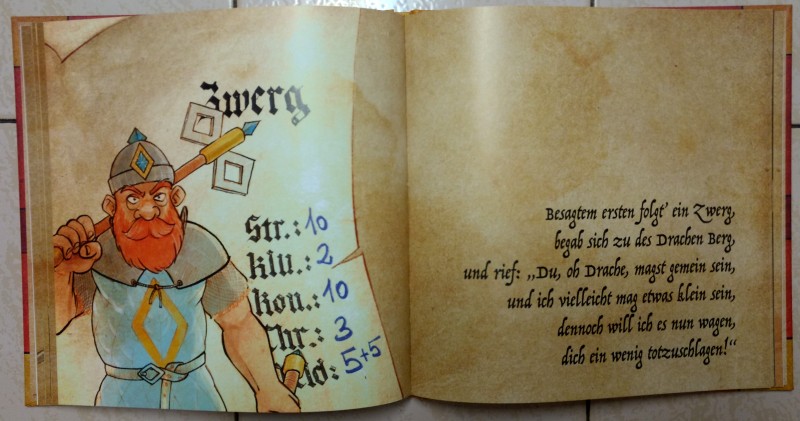 Zwerg
Str.: 10
Klu.: 2
Kon.: 10
Chr.: 3
5+5
Besagtem ersten folgt' ein Zwerg,
begab sich zu des Drachen Berg,
und rief: „Du, oh Drache, magst gemein sein,
und ich vielleicht mag etwas klein sein,
dennoch will ich es nun wagen,
dich ein wenig totzuschlagen!“